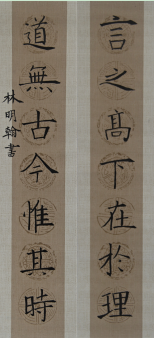 言之高下在於理
道無古今惟其時
林明翰書